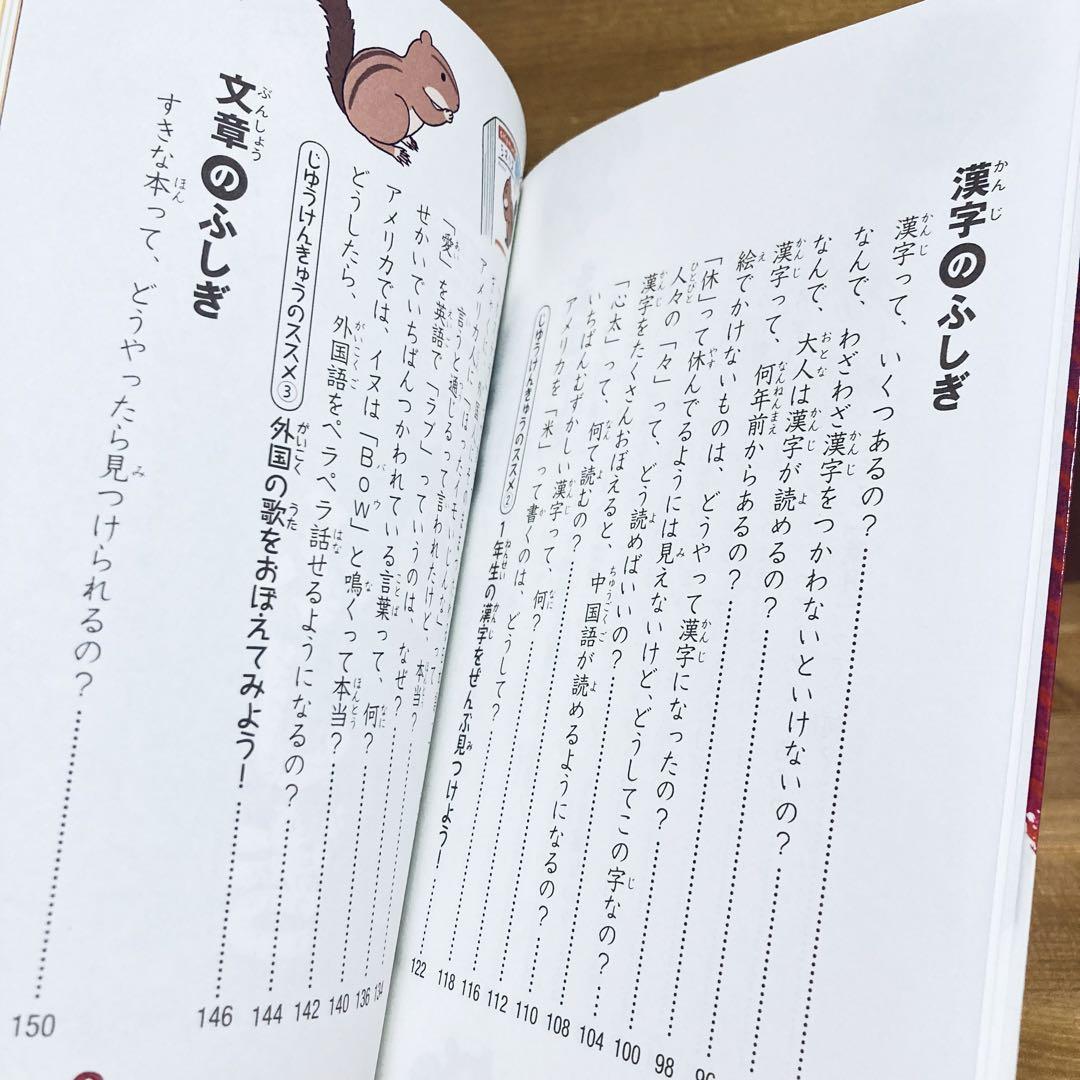 漢字のふしぎ
漢字って、いくつあるの?
なんで、わざわざ漢字をつかわないといけないの?
なんで、大人は漢字が読めるの? 96
漢字って、何年前からあるの? 98
絵でかけないものは、どうやって漢字になったの? 100
「休」って休んでるようには見えないけど、どうしてこの字なの? 104
人々の「々」って、どう読めばいいの? 108
漢字をたくさんおぼえると、中国語が読めるようになるの? 110
「心太」って、何て読むの? 112
いちばんむずかしい漢字って、何? 116
アメリカを「米」って書くのは、どうして? 118
じゆうけんきゅうのススメ② 1年生の漢字をぜんぶ見つけよう! 122
アメリカ人に「ほったイモいじんな」って
言うと通じるって言われたけど、本当? 134
「愛」を英語で「ラブ」っていうのは、なぜ? 136
せかいでいちばんつかわれている言葉って、何? 140
アメリカでは、イヌは「BOW」と鳴くって本当? 142
どうしたら、外国語をペラペラ話せるようになるの? 144
じゆうけんきゅうのススメ③ 外国の歌をおぼえてみよう! 146
文章のふしぎ
すきな本って、どうやったら見つけられるの? 150